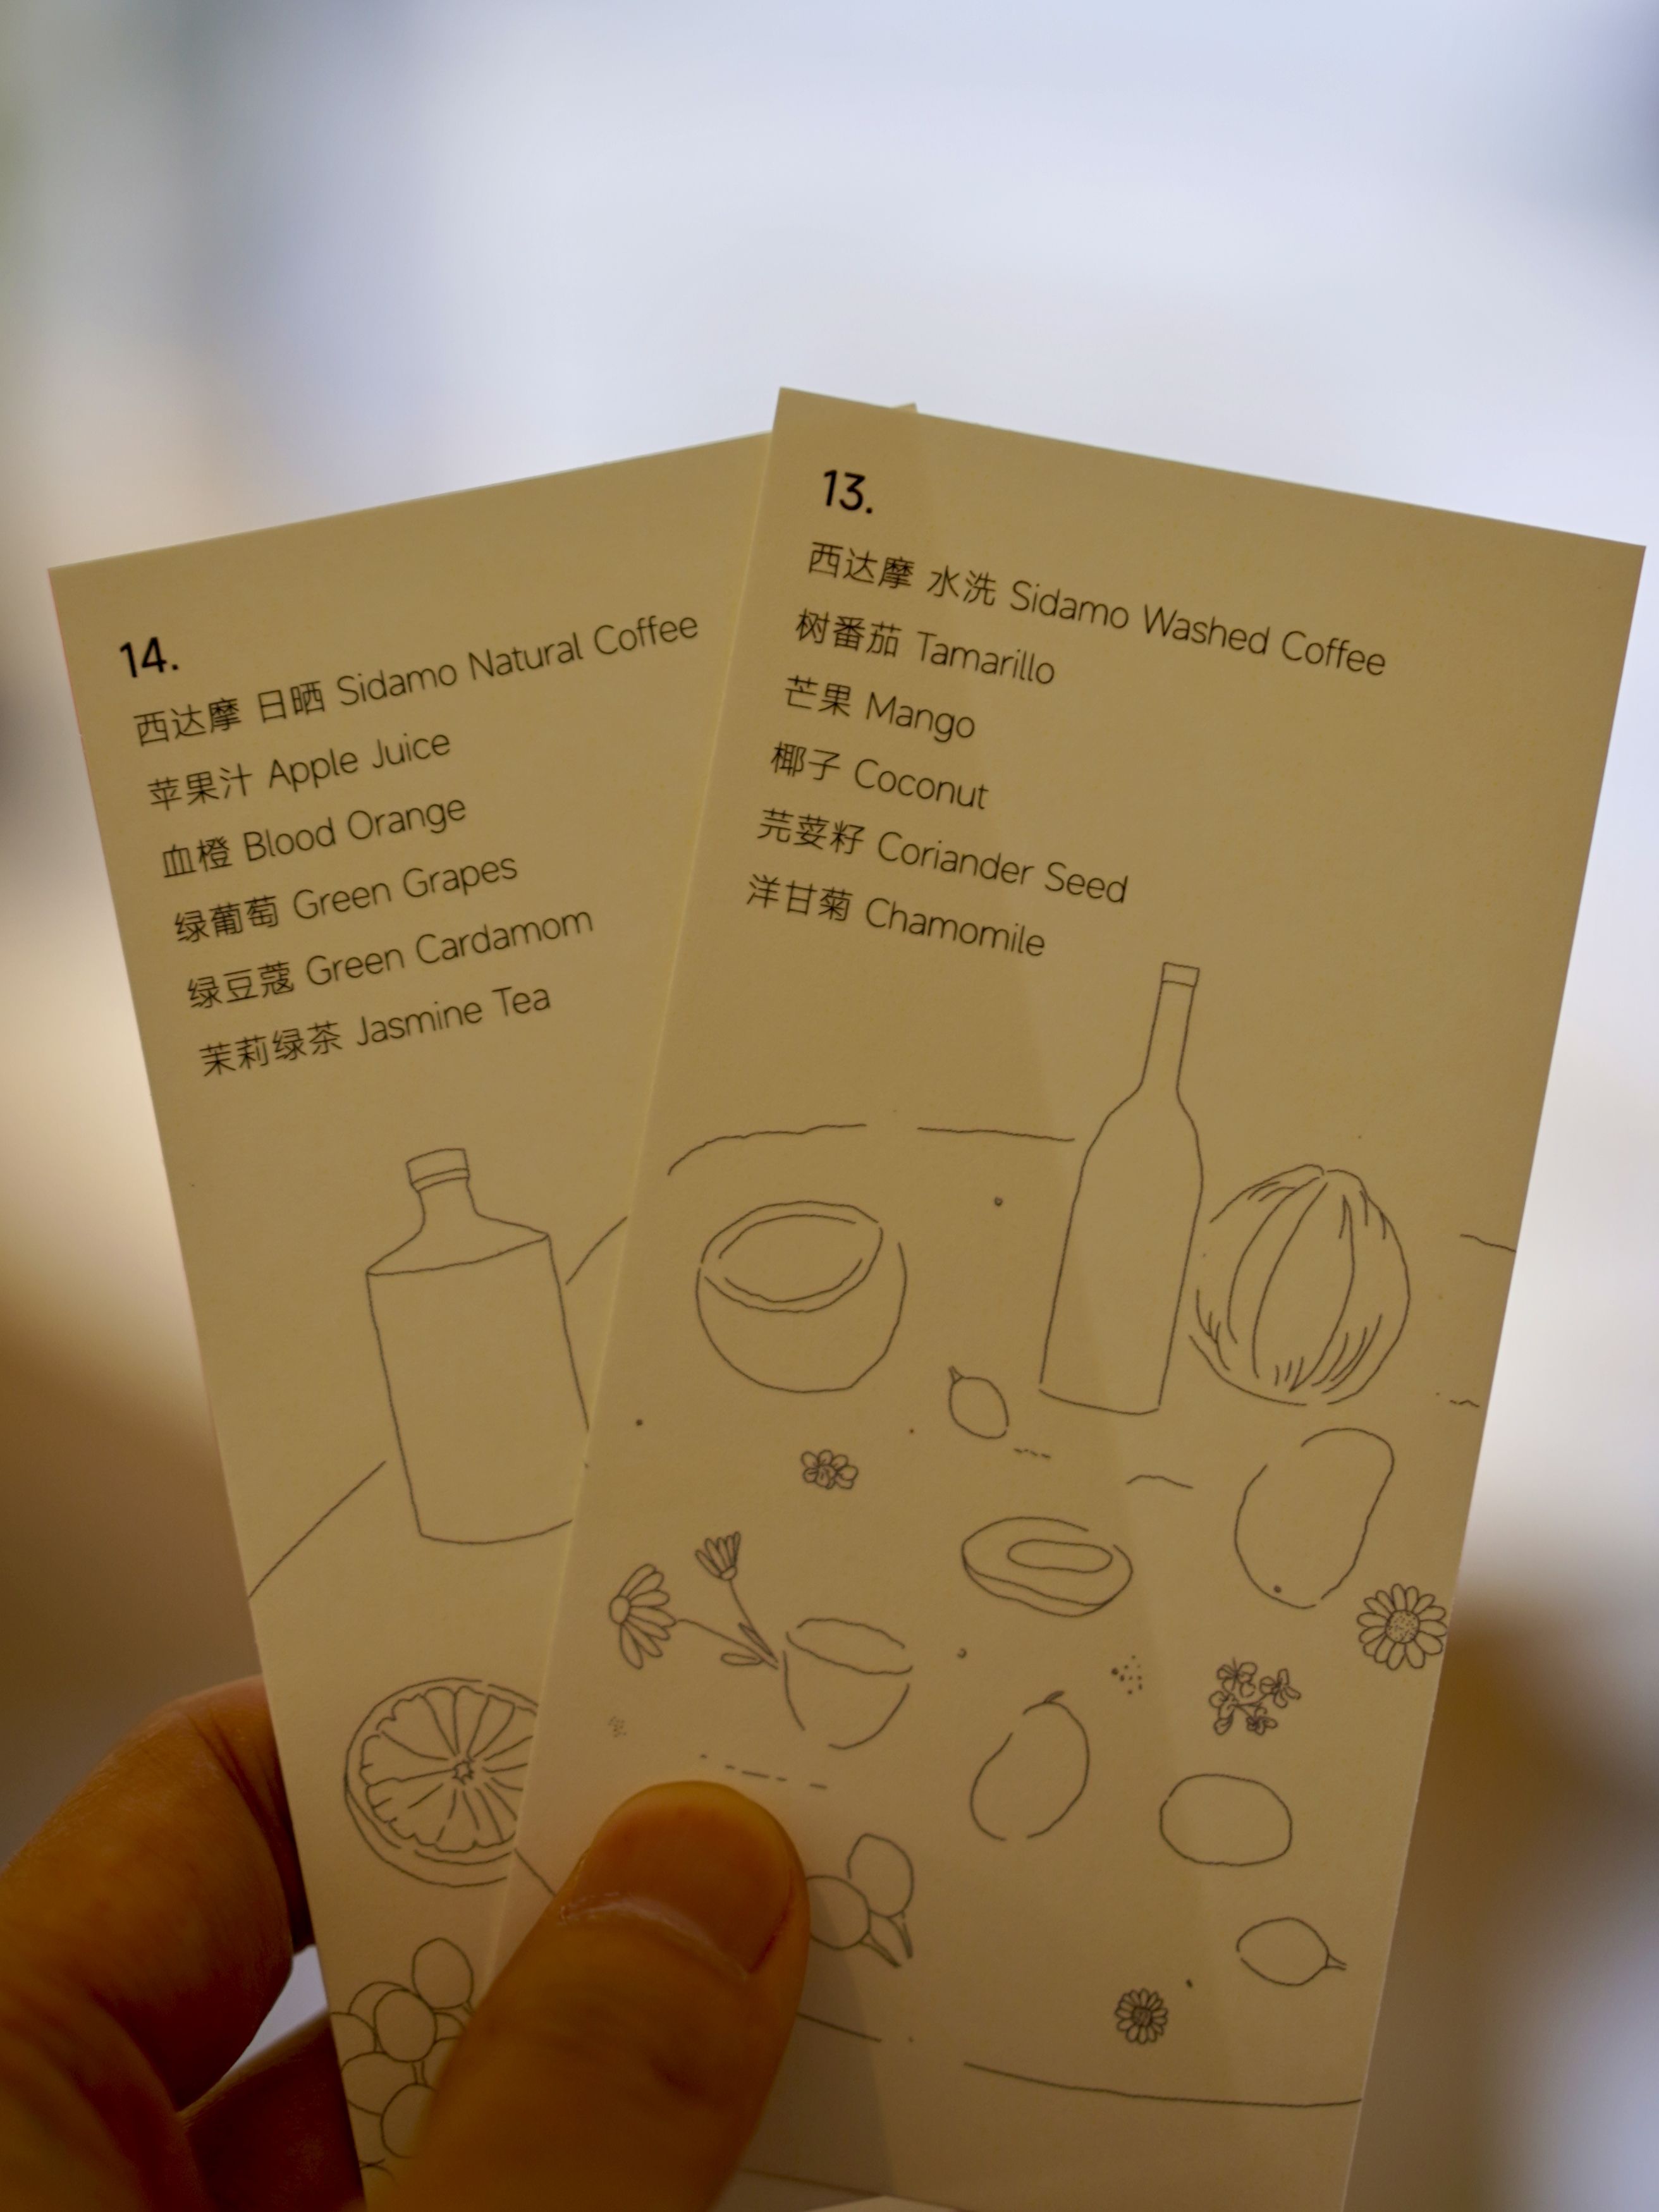 14.
西达摩 日晒 Sidamo Natural Coffee
苹果汁 Apple Juice
血橙 Blood Orange
绿葡萄 Green Grapes
绿豆蔻 Green Cardamom
茉莉绿茶 Jasmine Tea
13.
西达摩 水洗 Sidamo Washed Coffee
树番茄 Tamarillo
芒果 Mango
椰子 Coconut
芫荽籽 Coriander Seed
洋甘菊 Chamomile